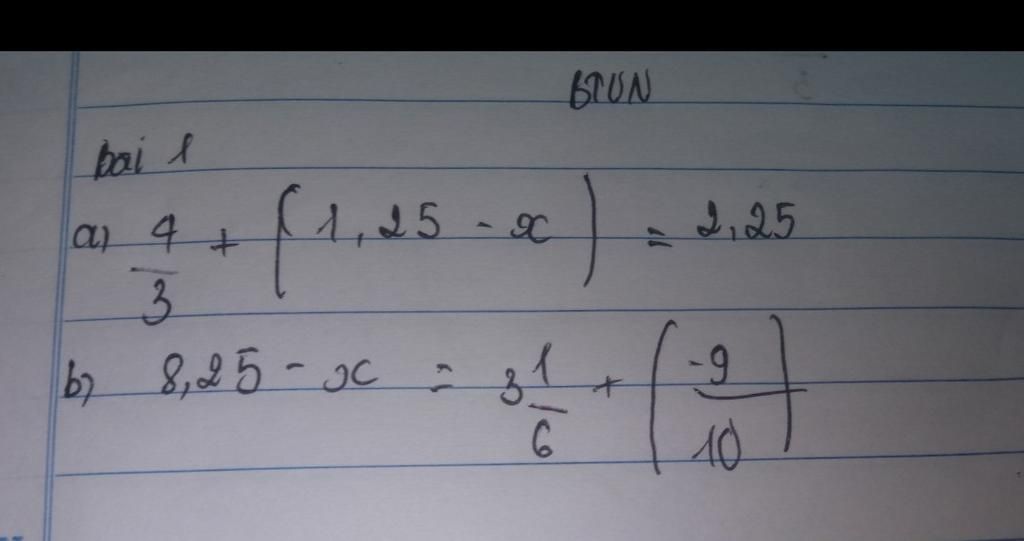 BTVN
bai 1
a) 4/3 + (1,25 - x) = 2,25
b) 8,25 - x = 3 1/6 + (-9/10)